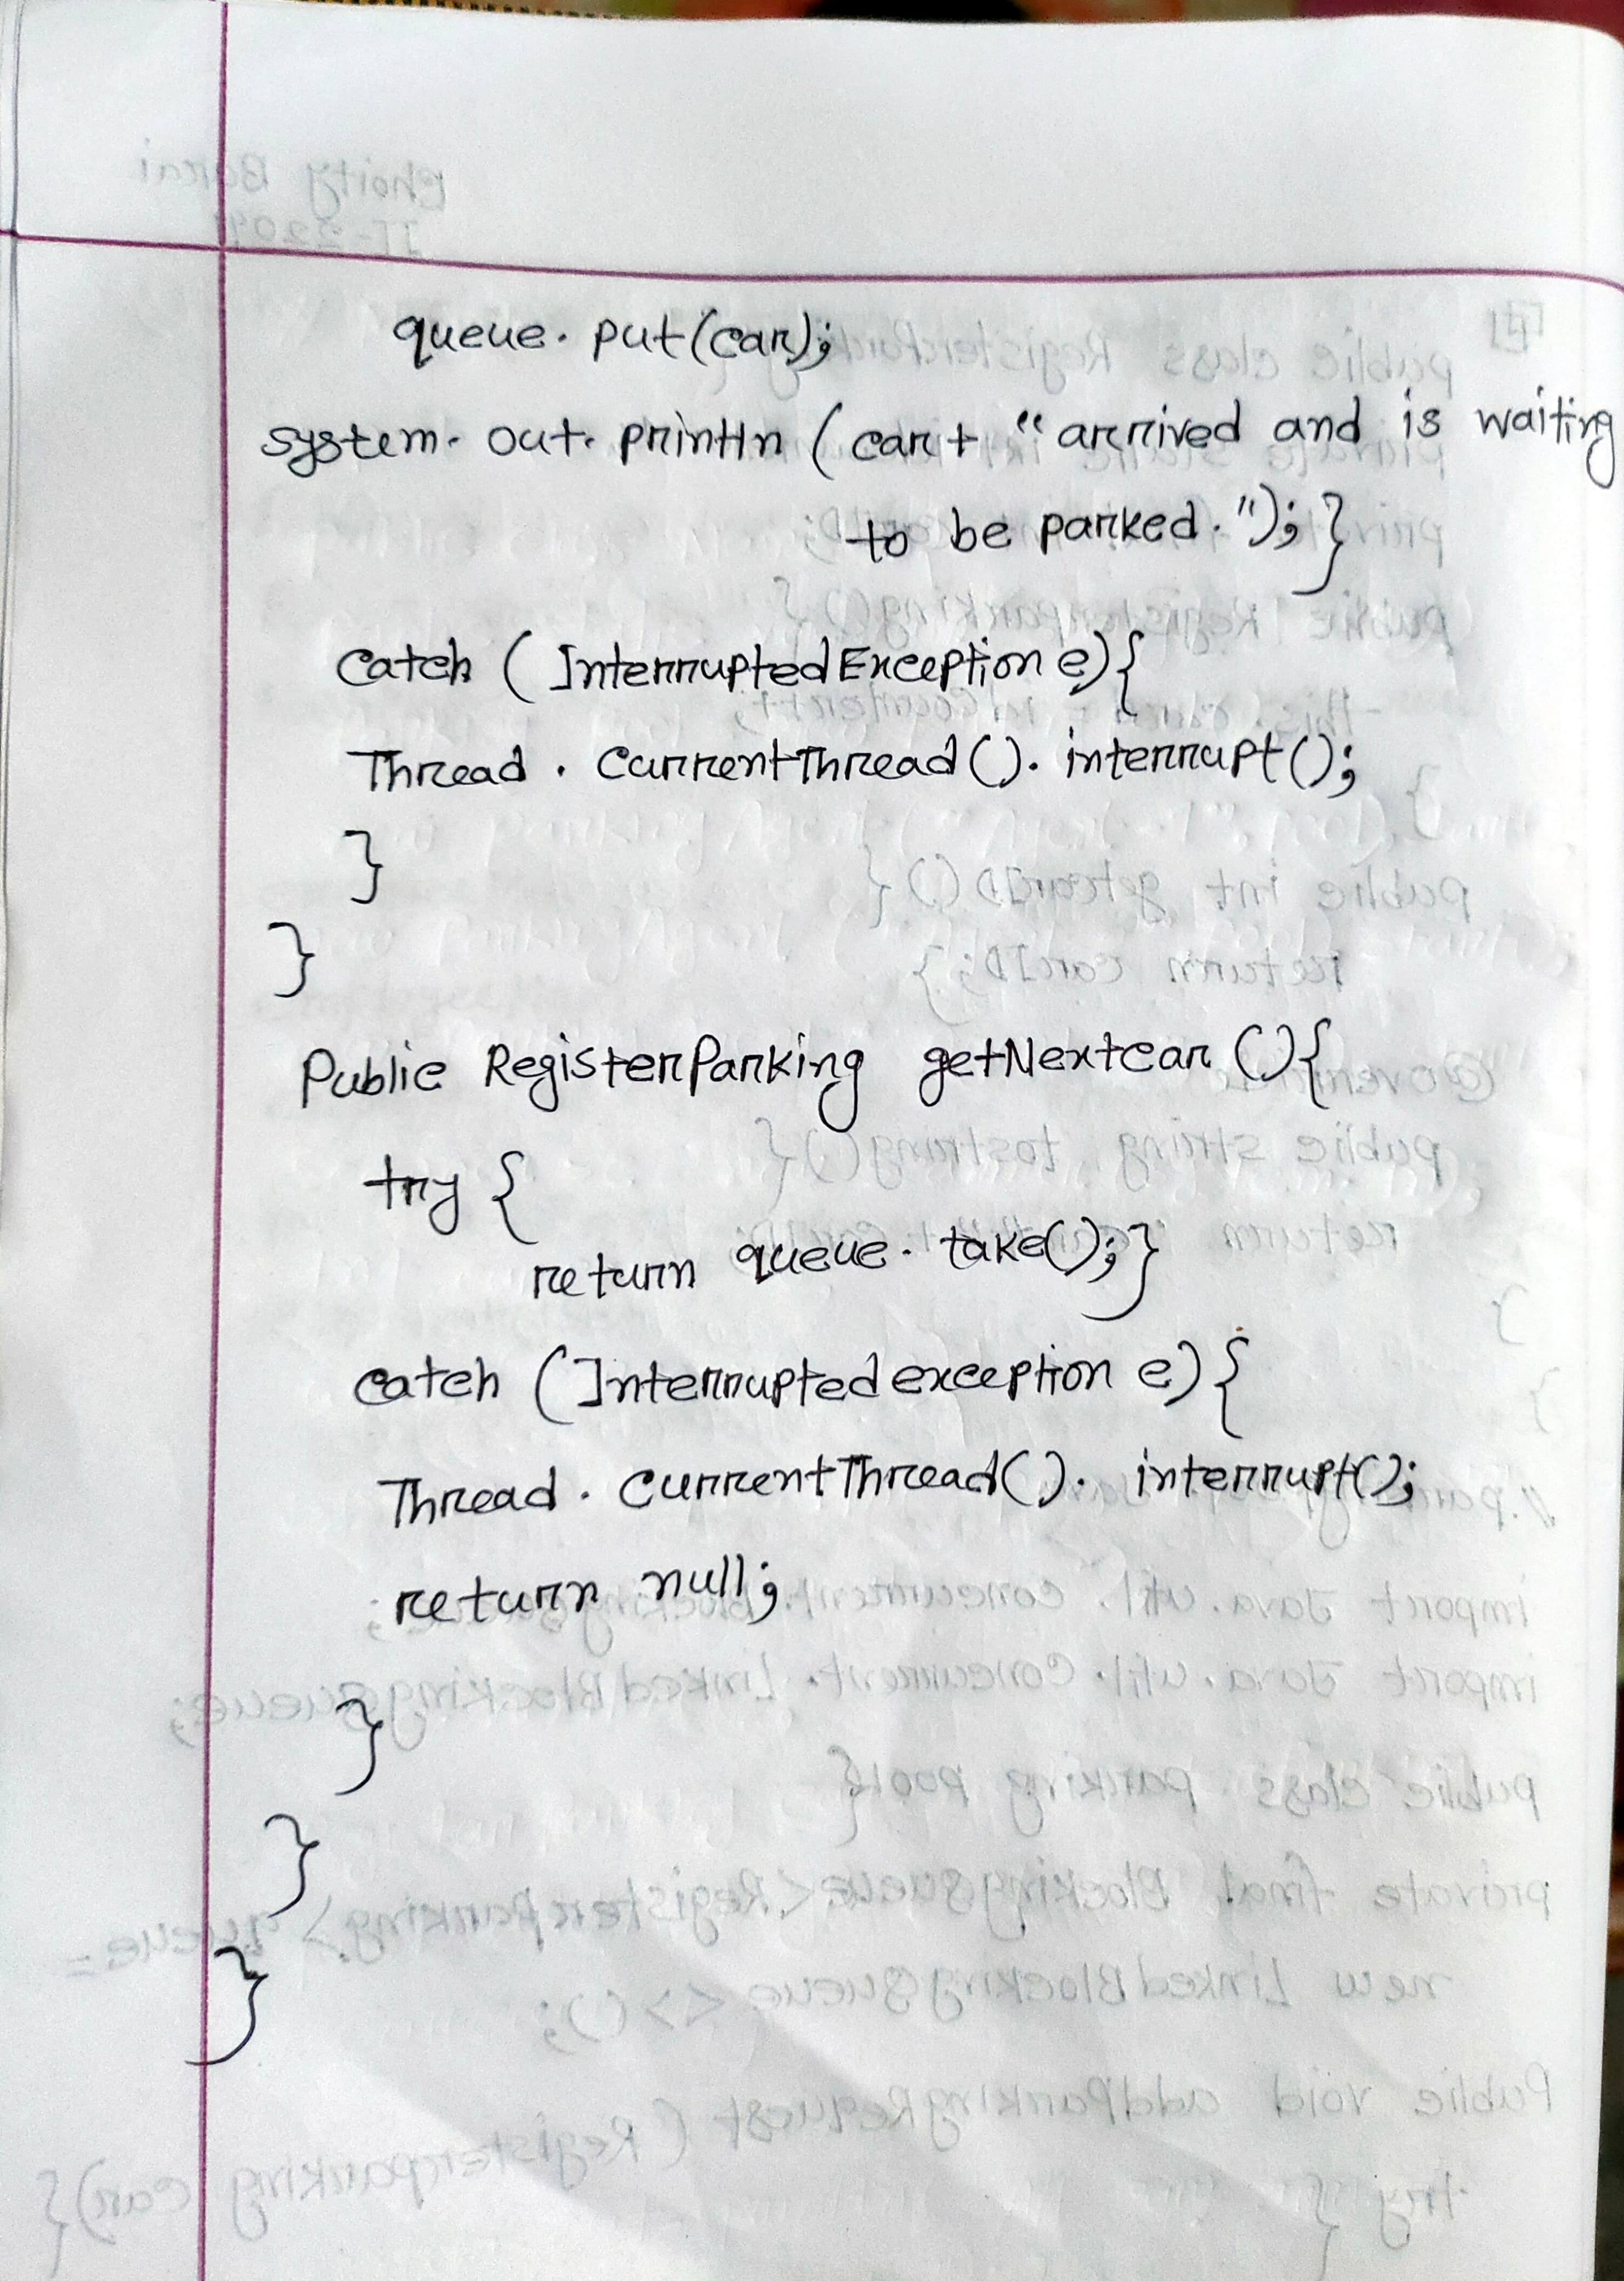 queue. put(car);
system. out. println (car + " arrived and is waiting
to be parked. "); }
catch ( InterruptedException e){
Thread . CurrentThread (). interrupt ();
}
}
Public RegisterParking getNextcar (){
try {
return queue. take(); }
catch (Interruptedexception e) {
Thread . CurrentThread(). interrupt();
return null;
}
}
}